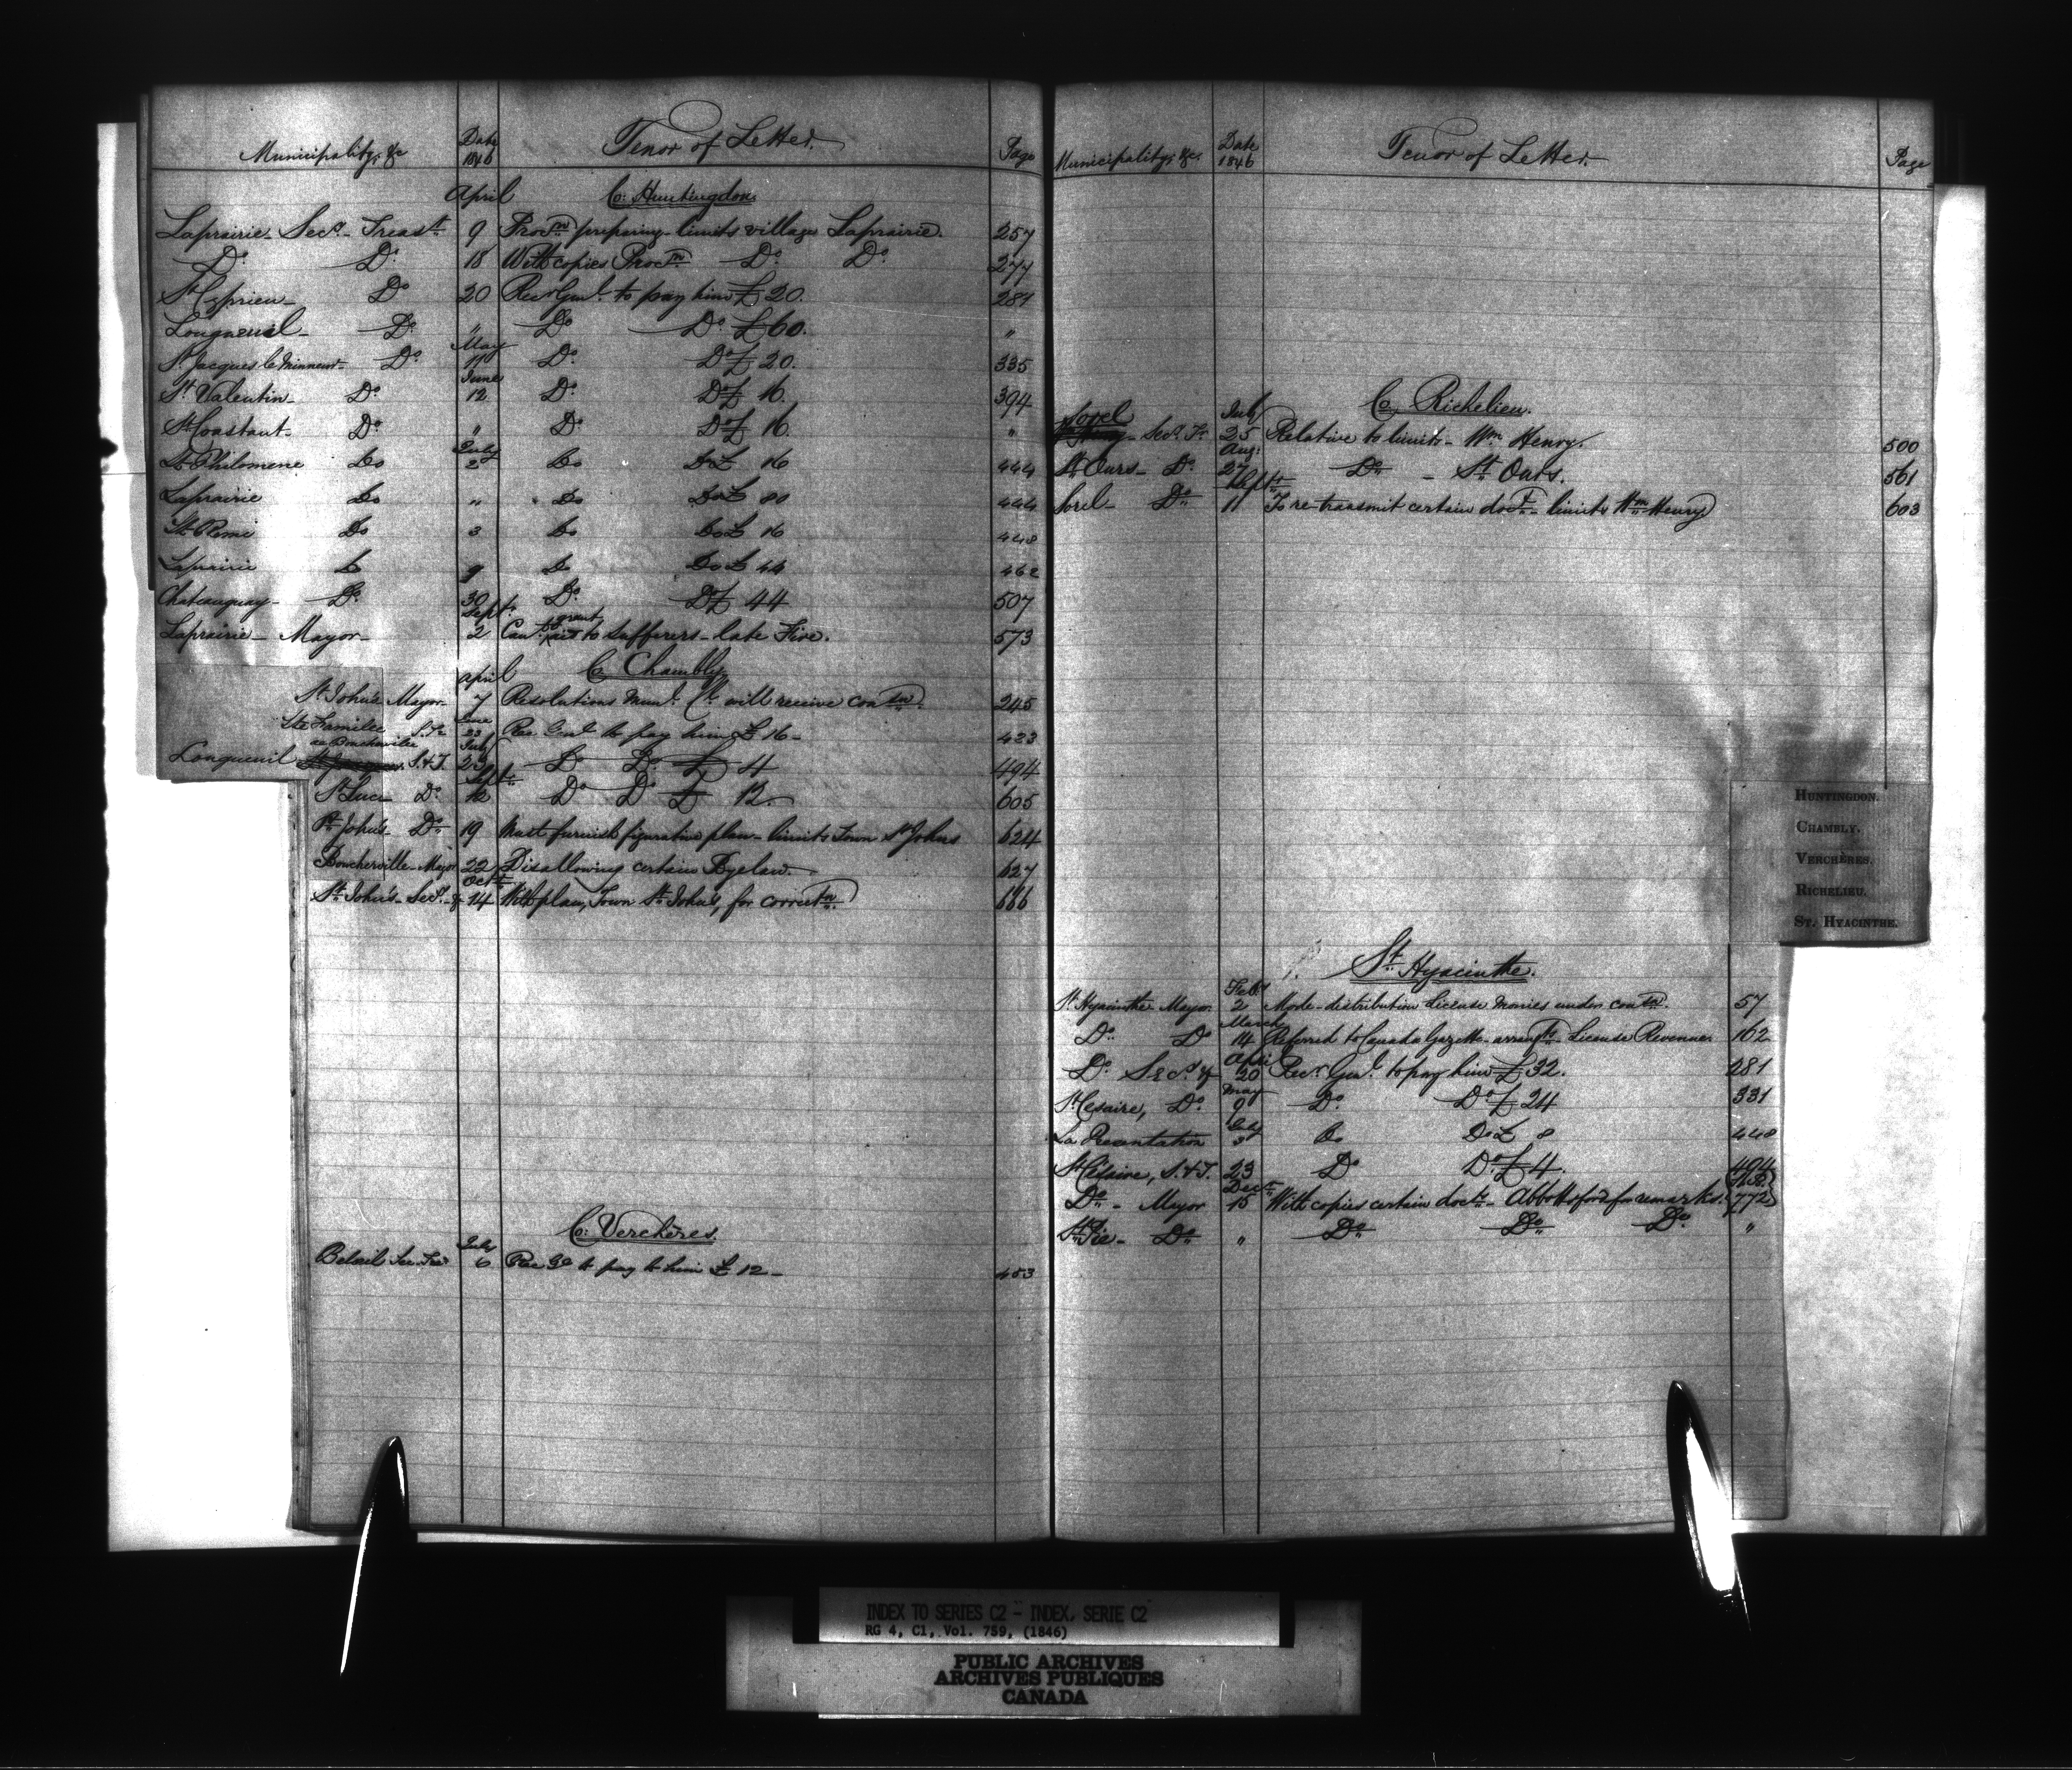 Municipality, &c Date 1846 Tenor of Letter. Page
April Co: Huntingdon
Laprairie Secy. Treasr. 9 Procm preparing limits village Laprairie. 257
Do. Do. 18 With copies Procm. Do. Do. 277
St Cyprien Do 20 Recr Genl. to pay him £20. 281
Longueuil Do " Do Do £60. "
May
St Jacques le Mineur Do. 11 Do. Do £20. 335
June
St Valentin Do. 12 Do. Do £ 16. 394
St Constant Do. " Do Do £ 16. "
July
St Philomene Do 2 Do Do £ 16 444
Laprairie Do " Do Do £ 80 444
St Remi Do 3 Do Do £ 16 448
Laprairie Do 9 Do Do £ 44 462
Chateauguay Do. 30 Do. Do £ 44 507
Sept. grant
Laprairie Mayor 2 Can't to sufferers late Fire. 573
April Co Chambly
St John's Mayor 7 Resolutions Munl. Cl. will receive conson. 245
June
Ste Famille de Boucherville S. Tr 23 Rec Genl to pay him £ 16 423
July
Longueuil S.&T. 23 Do Do. £ 4 494
Sept.
St Luc Do. 12 Do Do £ 12. 605
St John's Do 19 Must furnish figurative plan limits Town St Johns 624
Boucherville Mayor 22 Disallowing certain Byelaw. 627
Oct.
St. John's Secy. & 14 With plan, Town St. John's, for correctn. 666
Co: Verchères.
July
Belœil Sec Tre 6 Rec Gl to pay to him £ 12 453
Municipality, &c. Date 1846 Tenor of Letter. Page
Co Richelieu.
Sorel July
Secy. Tr. 25 Relative to limits Wm Henry. 500
Aug:
St Ours Do. 27 Do St Ours. 561
Sept
Sorel Do 11 To re-transmit certain docts. limits Wm Henry 603
HUNTINGDON.
CHAMBLY.
VERCHÈRES.
RICHELIEU.
ST. HYACINTHE.
St. Hyacinthe.
Feby
St Hyacinthe Mayor 2 Mode distribution License Monies under conson. 57
March
Do. Do 14 Referred to Canada Gazette arrangts License Revenue 162
April
Do. Secy. & 20 Recr. Genl. to pay him £32. 281
May
St Cesaire, Do. 9 Do. Do £ 24 331
July
La Presentation 3 Do Do £ 8 448
St Césaire, S.&T. 23 Do Do. £4. 494
Decr.
Do. Mayor 15 With copies certain docts. Abbottsford for remarks. 772
St Pie Do " Do Do Do "
INDEX TO SERIES C2 - INDEX, SERIE C2
RG 4, C1, Vol. 759, (1846)
PUBLIC ARCHIVES
ARCHIVES PUBLIQUES
CANADA